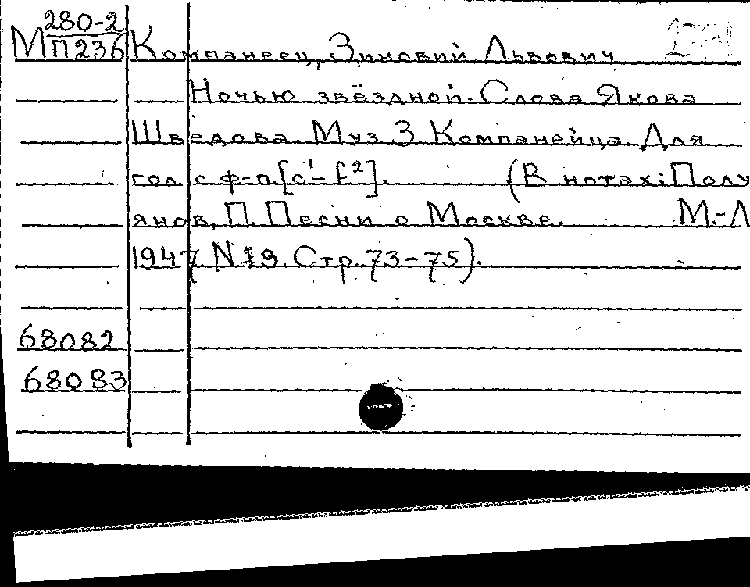 280-2
М П236 Компанеец, Зиновий Львович
Ночью звёздной. Слова Якова
Шведова. Муз. З. Компанейца. Для
гол. с ф-п. [c¹-f²]. (В нотах: Полу
янов, П. Песни о Москве. М.-Л
1947 N 19. Стр. 73-75).
68082
68083